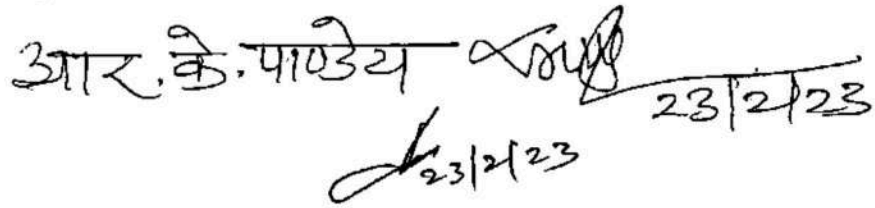 आर. के. पाण्डेय
23/2/23
23/2/23